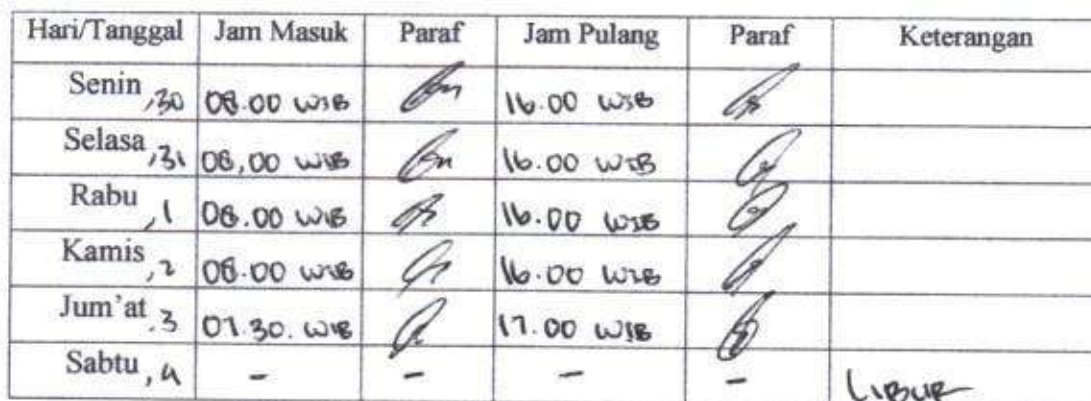 Hari/Tanggal Jam Masuk Paraf Jam Pulang Paraf Keterangan
Senin ,30 08.00 WIB 16.00 WIB
Selasa ,31 08,00 WIB 16.00 WIB
Rabu ,1 08.00 WIB 16.00 WIB
Kamis ,2 08.00 WIB 16.00 WIB
Jum'at ,3 07.30. WIB 17.00 WIB
Sabtu ,4 - - - - LIBUR